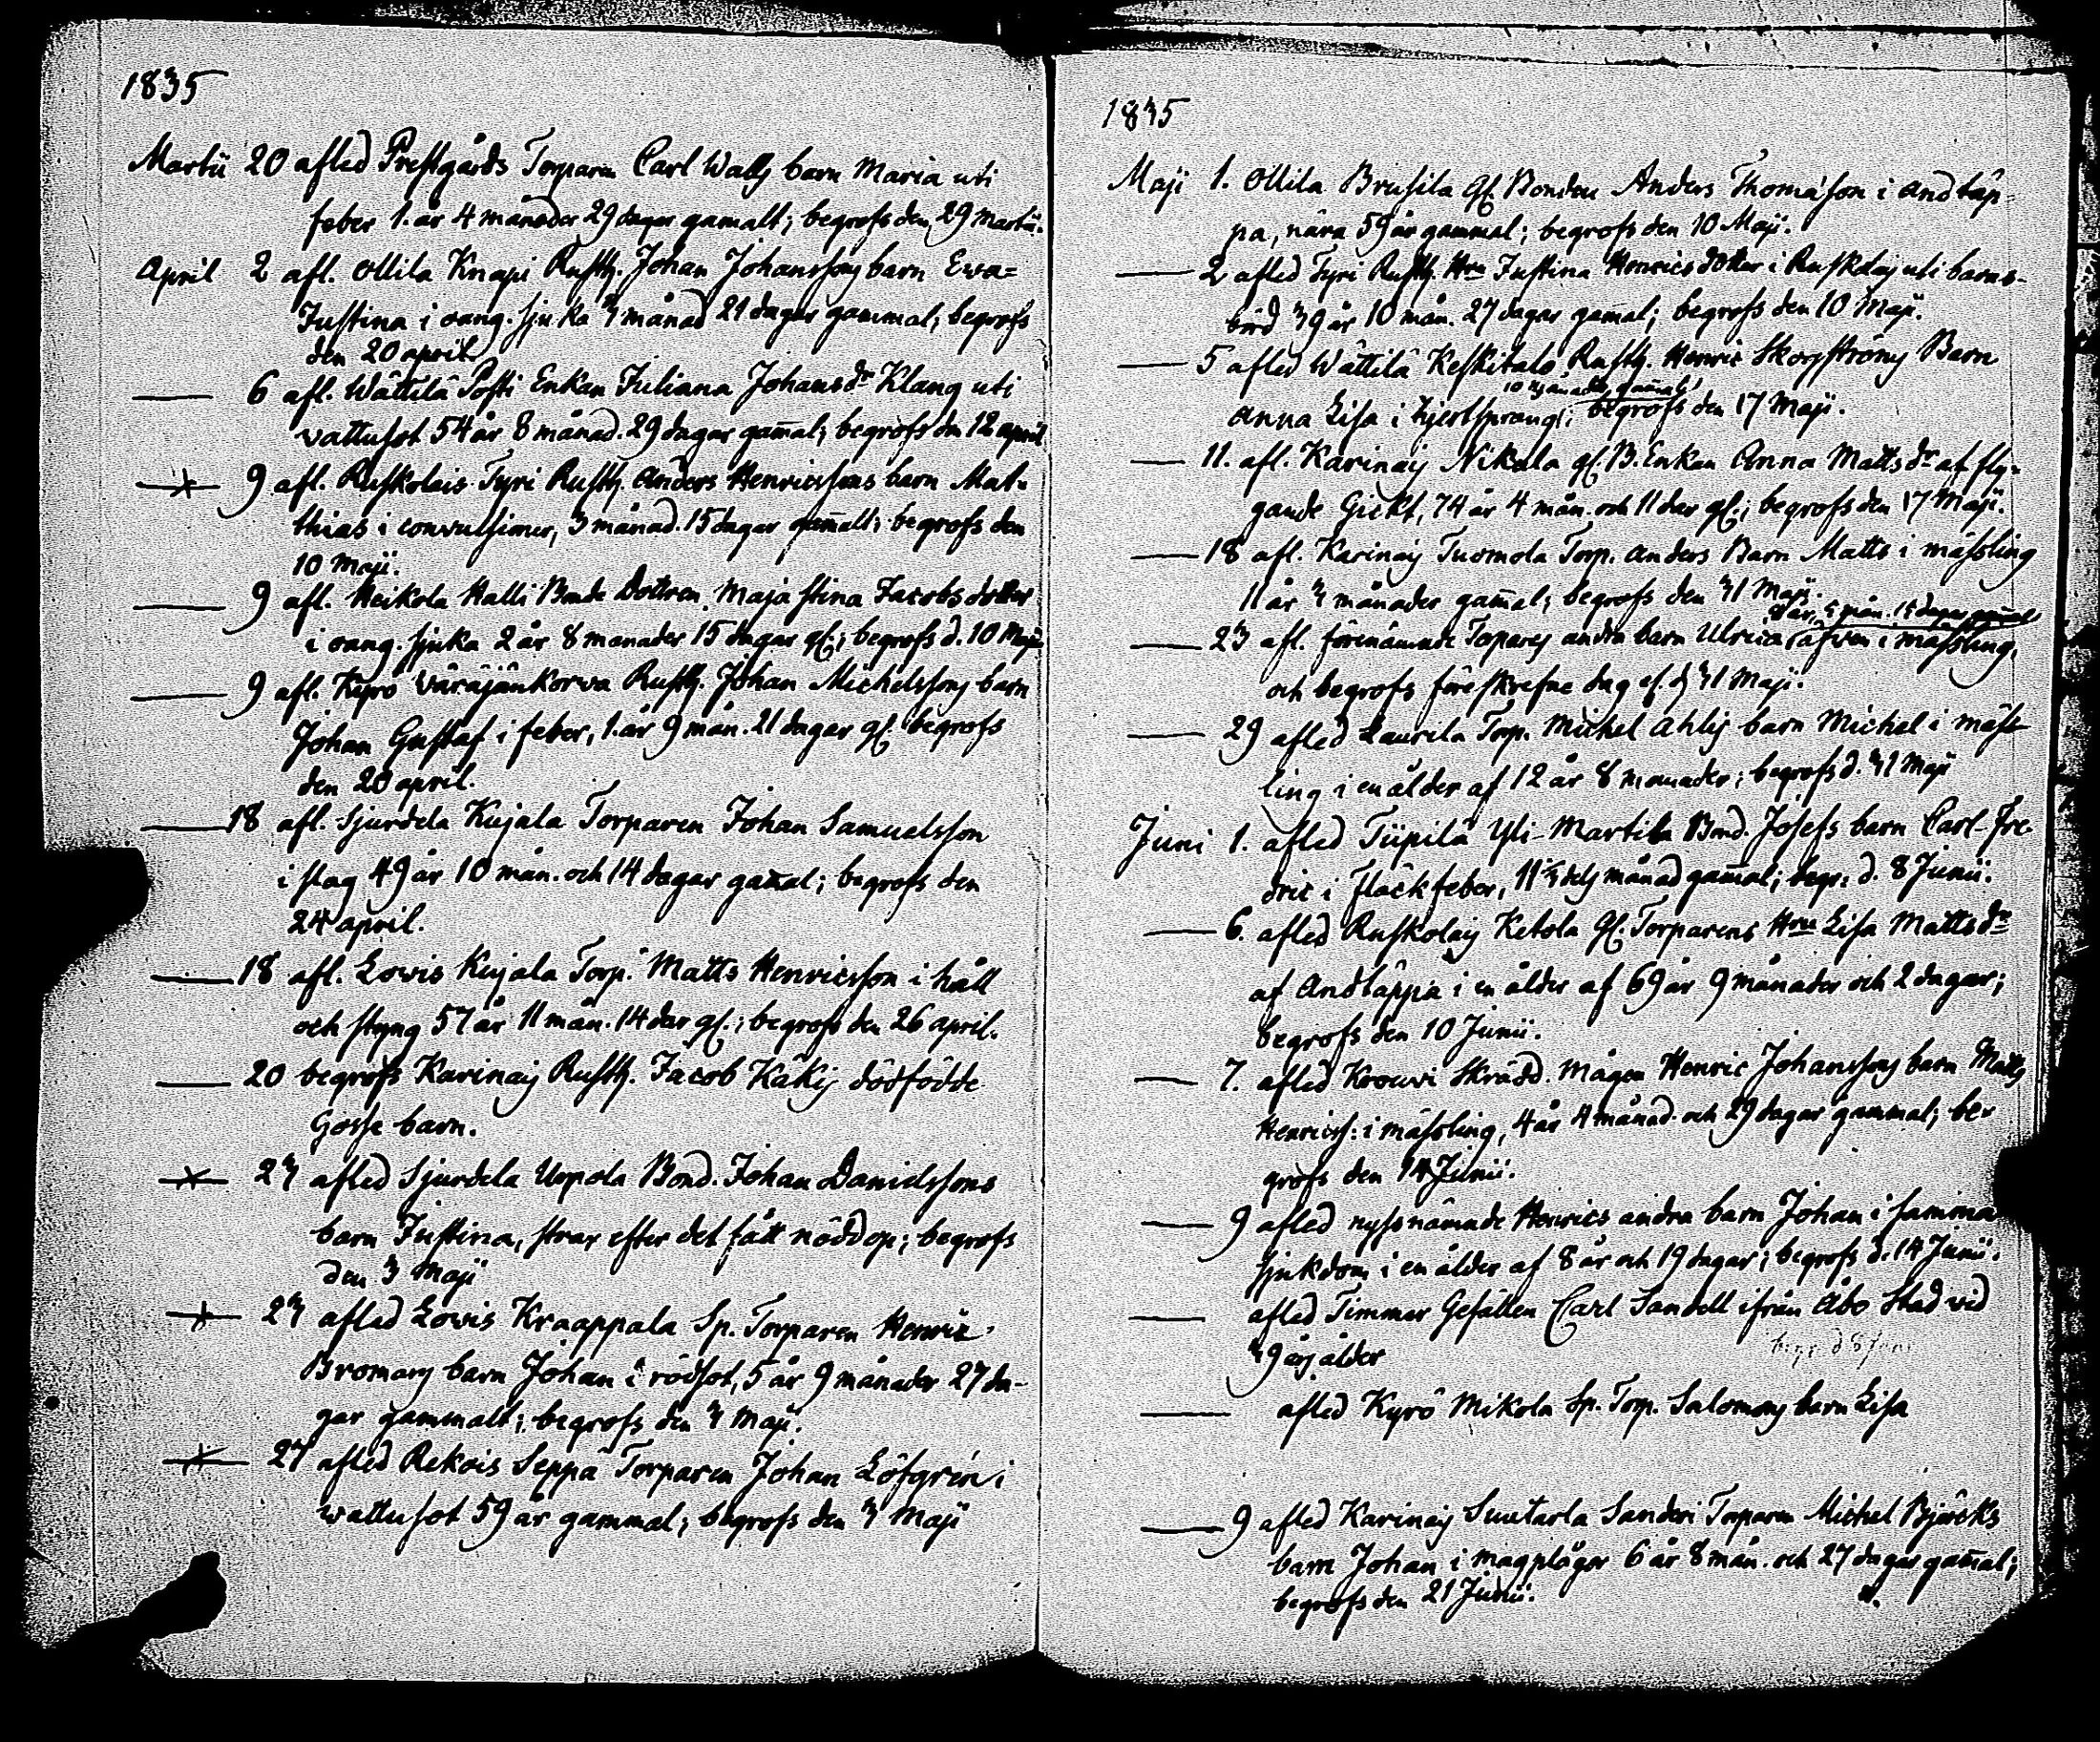 1835
Martii 20 afled Prestgårds Torparen Carl Walls barn Maria uti
feber 1. år 4 månader 29 dagar gamalt; begrofs den 29 Martii.
April 2 afl. Ollila Knapi Rusth. Johan Johanssons barn Ewa=
Justina i oang. sjuka 3 månad 21 dagar gammal, begrofs
den 20 april.
6 afl. Wättilä Posti Enkan Juliana Johansdr Klang uti
vattusot 54 år 8 månad. 29 dagar gamal; begrofs den 12 april
9 afl. Ruskolais Tyri Rusth. Anders Henricssons barn Mat=
thias i convulsioner, 3 månad. 15 dagar gamalt; begrofs den
10 Maji.
9 afl. Heikola Halli Bonde Dottren Maja Stina Jacobs dotter
i oang. sjuka 2 år 8 månader 15 dagar gl.; begrofs d. 10 Maji
9 afl. Kyrö Wäräjänkorwa Rusth. Johan Michelssons barn
Johan Gustaf i feber, 1. år 9 mån. 21 dagar gl. begrofs
den 20 april.
18 afl. Sjurdela Kujala Torparen Johan Samuelsson
i slag 49 år 10 mån. och 14 dagar gamal; begrofs den
24 april.
18 afl. Lowis Kujala Torp. Matts Henricsson i håll
och styng 57 år 11 mån. 14 dar gl.; begrofs den 26 april.
20 begrofs Karinais Rusth. Jacob Käkis dödfödde
Gosse barn.
23 afled Sjurdela Uopola Bond. Johan Danielssons
barn Justina, strax efter det fått nöddop; begrofs
den 3 Maji
23 afled Lowis Kraappala Sp. Torparen Henric
Bromans barn Johan i rödsot, 5 år 9 månader 27 da-
gar gammalt; begrofs den 3 Maji.
27 afled Rekois Seppä Torparen Johan Löfgrén i
wattusot 59 år gammal; begrofs den 3 Maji
1835
Maji 1. Ollila Brusila Gl. Bonden Anders Thomasson i andtäp-
pa, nära 59 år gammal; begrofs den 10 Maji.
2 afled Tyri Rusth. Hru Justina Henricsdotter i Ruskolais uti barns-
börd 39 år 10 mån. 27 dagar gamal; begrofs den 10 Maji.
5 afled Wättilä Keskitalo Rusth. Henric Skogströms Barn
10 månader gamal;
Anna Lisa i hjertsprång; begrofs den 17 Maji.
11. afl. Karinais Nikala gl. B. Enkan Anna Matts dr af fly-
gande Gickt, 74 år 4 mån. och 11 dar gl.; begrofs den 17 Maji.
18 afl. Karinais Tuomola Torp. Anders Barn Matts i mässling
11 år 3 månader gamal; begrofs den 31 Maji.
8 år, 5 mån. 15 dagar gamal
23 afl. förenämnde Torpares andra barn Ulrica äfven i mässling,
och begrofs föreskrefne dag ell. d. 31 Maji.
29 afled Laurila Torp. Michel Ahlis barn Michel i mäss-
ling i en ålder af 12 år 8 månader; begrofs d. 31 Maji
Juni 1. afled Tiipilä Yli-Martila Bond. Josefs barn Carl-Fre-
dric i Fläckfeber, 11 1/2 dels månad gamal; begr: d. 8 Junii.
6. afled Ruskolais Ketola Gl. Torparens Hru Lisa Mattsdr
af Andtäppa i en ålder af 69 år 9 månader och 2 dagar;
begrofs den 10 Junii.
7. afled Krouvi Skrädd. Mågen Henric Johanssons barn Matts
Henricss: i mässling, 4 år 4 månad. och 29 dagar gammal; be-
grofs den 14 Junii.
9 afled nyssnämnde Henrics andra barn Johan i samma
sjukdom i en ålder af 8 år och 19 dagar; begrofs d. 14 Junii.
afled Timmer Gesällen Carl Sandell ifrån Åbo Stad vid
39 års ålder begr. d 8 Juni
afled Kyrö Mikola Sp. Torp. Salomons barn Lisa
9 afled Karinais Suutarla Sanderi Torparen Michel Björcks
barn Johan i magplågor 6 år 8 mån. och 27 dagar gamal;
begrofs den 21 Junii.